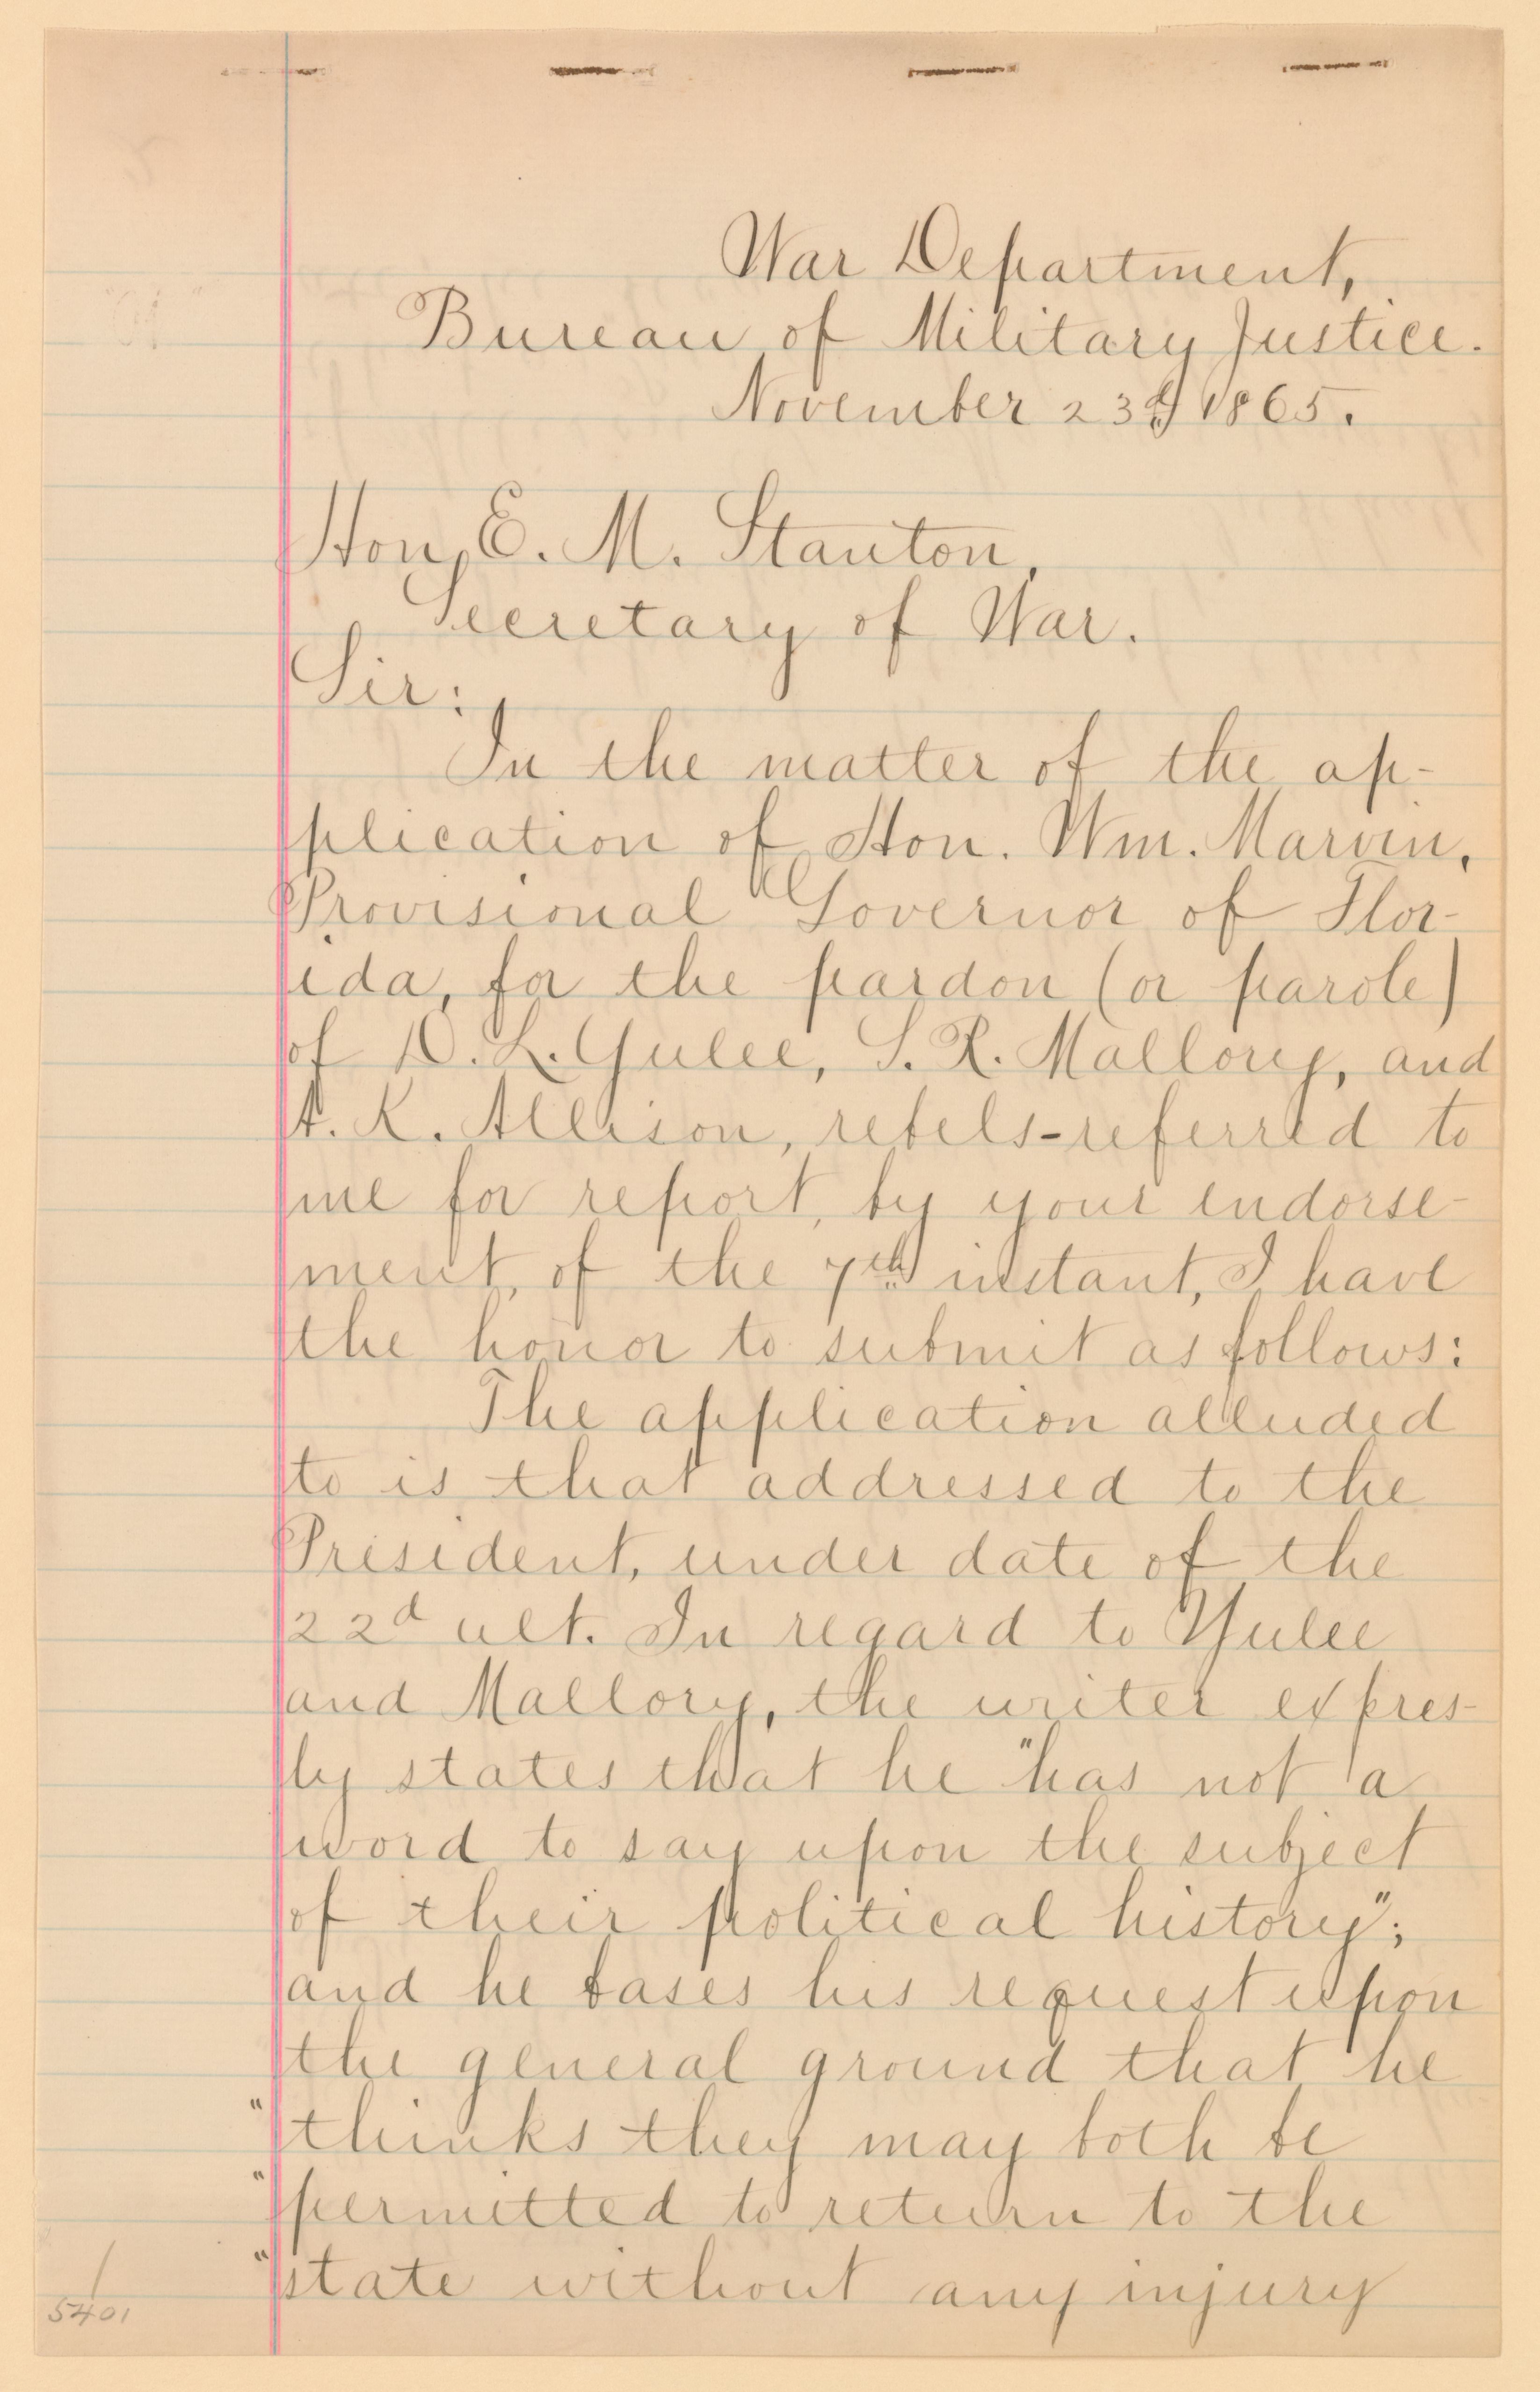 War Department,
Bureau of Military Justice.
November 23d, 1865.
Hon. E. M. Stanton,
Secretary of War.
Sir:
In the matter of the ap-
plication of Hon. Wm. Marvin,
Provisional Governor of Flor-
ida, for the pardon (or parole)
of D. L. Yulee, S. R. Mallory, and
A. K. Allison, rebels-referred to
me for report, by your endorse-
ment, of the 7th instant, I have
the honor to submit as follows:
The application alluded
to is that addressed to the
President, under date of the
22d ult. In regard to Yulee
and Mallory, the writer expres-
ly states that he "has not a
word to say upon the subject
of their political history";
and he bases his request upon
the general ground that he
"thinks they may both be
"permitted to return to the
"state without any injury
5401